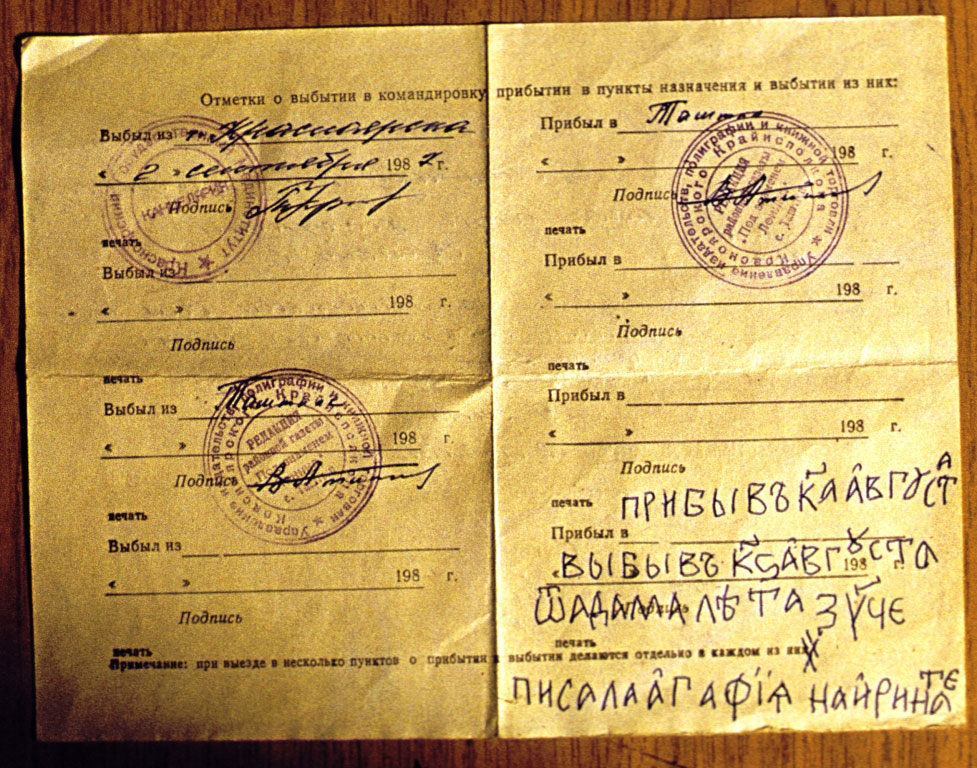 Отметки о выбытии в командировку, прибытии в пункты назначения и выбытии из них:
Выбыл из г. Красноярска
« 2 » сентября 198 2 г.
Подпись
печать
Выбыл из
« » 198 г.
Подпись
печать
Выбыл из
« » 198 г.
Подпись
печать
Выбыл из
« » 198 г.
Подпись
печать
Прибыл в
« » 198 г.
Подпись
печать
Прибыл в
« » 198 г.
Подпись
печать
Прибыл в
« » 198 г.
Подпись
печать
ПРИБЫВЪ К҃А АВГУСТА
Прибыл в
ВЫБЫВЪ К҃Ѕ АВГУСТА
« 198 г.
ѾАДАМА ЛѢТА ЗУ҃ЧЕ
печать
Примечание: при выезде в несколько пунктов о прибытии и выбытии делаются отдельно в каждом из них
ПИСАЛА АГАФІА
Управление издательств, полиграфии и книжной торговли
Красноярского Крайисполкома
РЕДАКЦИЯ
районной газеты
Управление издательств, полиграфии и книжной торговли
Красноярского Крайисполкома
РЕДАКЦИЯ
районной газеты
КАНЦЕЛЯРИЯ